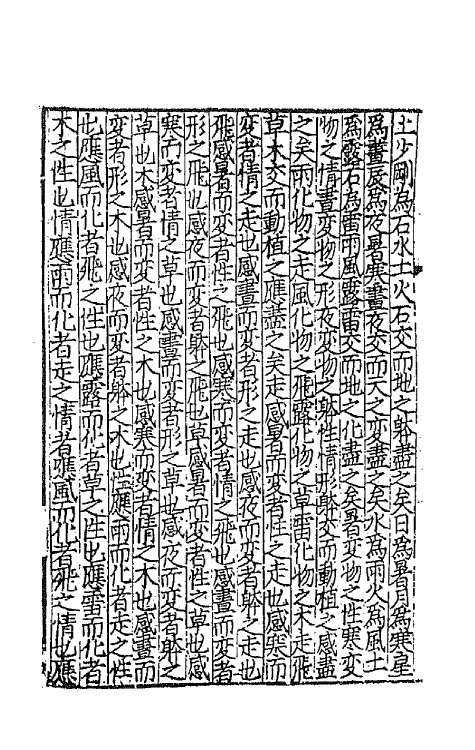 土少剛為石水土火石交而地之躰盡之矣日為暑月為寒星
為晝辰為夜暑寒晝夜交而天之变盡之矣水為雨火為風土
為露石為雷雨風露雷交而地之化盡之矣暑变物之性寒变
物之情晝变物之形夜变物之躰性情形躰交而動植之感盡
之矣雨化物之走風化物之飛露化物之草雷化物之木走飛
草木交而動植之應盡之矣走感暑而变者性之走也感寒而
变者情之走也感晝而变者形之走也感夜而变者躰之走也
飛感暑而变者性之飛也感寒而变者情之飛也感晝而变者
形之飛也感夜而变者躰之飛也草感暑而变者性之草也感
寒而变者情之草也感晝而变者形之草也感夜而变者躰之
草也木感暑而变者性之木也感寒而变者情之木也感晝而
变者形之木也感夜而变者躰之木也性應雨而化者走之性
也應風而化者飛之性也應露而化者草之性也應雷而化者
木之性也情應雨而化者走之情者應風而化者飛之情也應